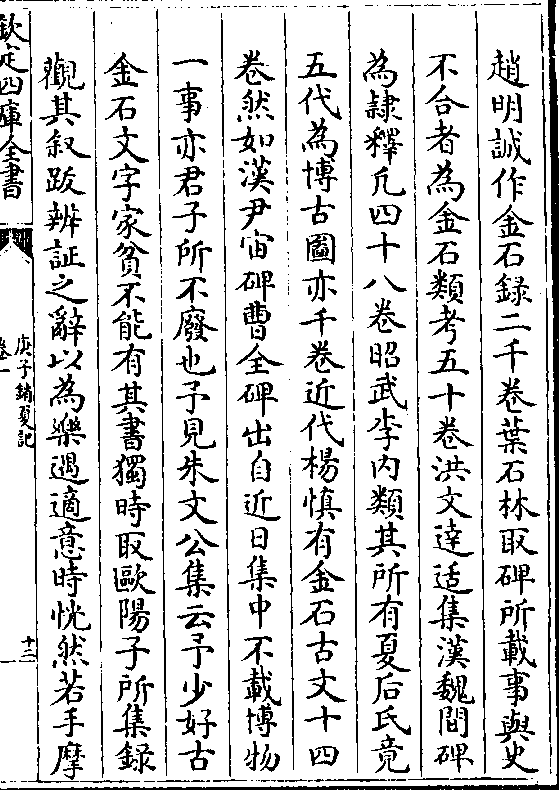 趙明誠作金石錄二千卷葉石林取碑所載事與史
不合者為金石類考五十卷洪文逹适集漢魏間碑
為隷釋凡四十八卷昭武李丙類其所有夏后氏竟
五代為博古圖亦千卷近代楊慎有金石古文十四
卷然如漢尹宙碑曹全碑出自近日集中不載博物
一事亦君子所不廢也予見朱文公集云予少好古
金石文字家貧不能有其書獨時取歐陽子所集錄
觀其叙跋辨証之辭以為樂遇適意時恍然若手摩
欽定四庫全書
庚子銷夏記
卷一
十三